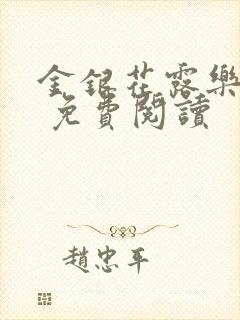 金銀花露樂
免費閱讀
趙忠平